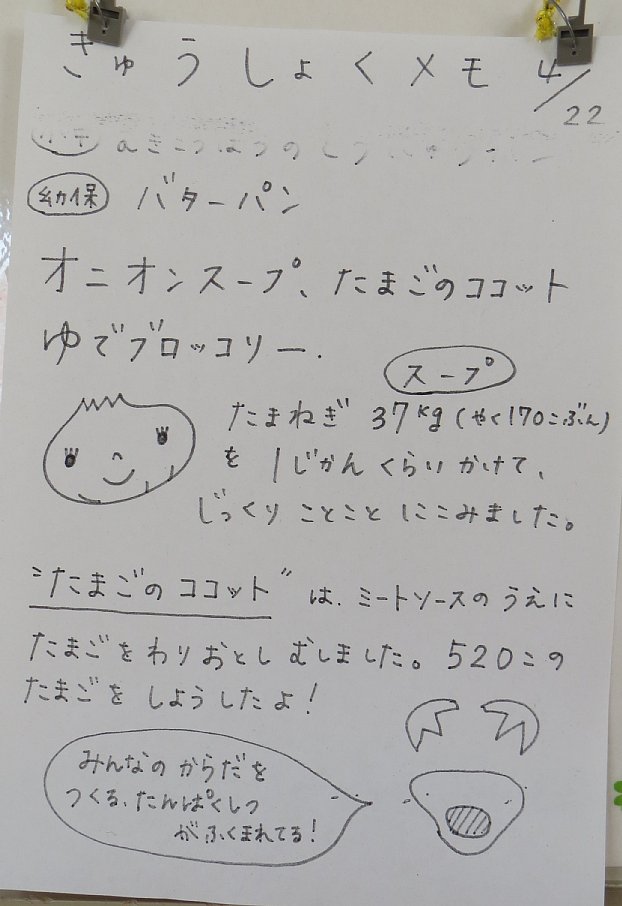 きゅうしょくメモ 4/22
幼保 バターパン
オニオンスープ、たまごのココット
ゆでブロッコリー.
スープ
たまねぎ 37kg(やく170こぶん)
を 1じかんくらいかけて、
じっくり ことこと にこみました。
"たまごのココット" は、ミートソースのうえに
たまごをわりおとし むしました。520この
たまごを しようしたよ!
みんなの からだを
つくる、たんぱくしつ
がふくまれてる!